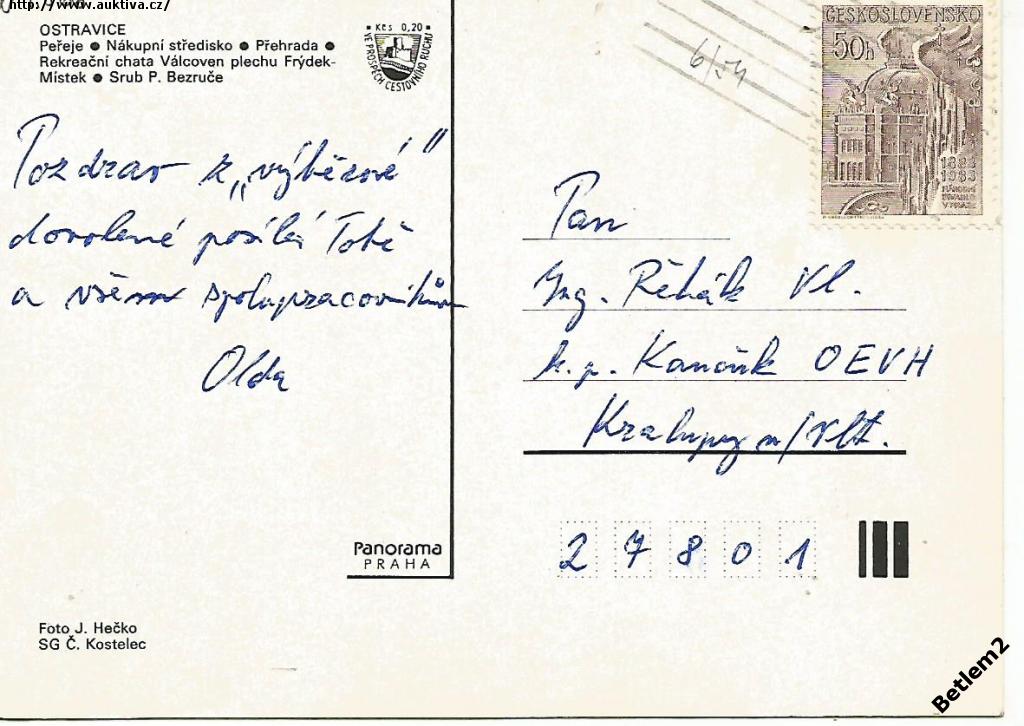 http://www.auktiva.cz/
OSTRAVICE
Peřeje ● Nákupní středisko ● Přehrada ●
Rekreační chata Válcoven plechu Frýdek-
Místek ● Srub P. Bezruče
Kčs 0,20
VE PROSPĚCH CESTOVNÍHO RUCHU
Pozdrav z „výběrové“
dovolené posílá Tobě
a všem spolupracovníkům
Olda
Panorama
PRAHA
Foto J. Hečko
SG Č. Kostelec
6/54
ČESKOSLOVENSKO
50h
1883
1983
NÁRODNÍ
DIVADLO
V PRAZE
Pan
Ing. Řehák Vl.
k.p. Kaučuk OEVH
Kralupy n/Vlt.
27801
Betlem2